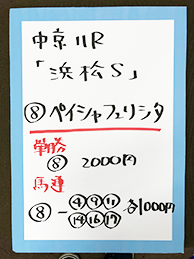 中京11R
「浜松S」
⑧ペイシャフェリシタ
単勝
⑧ 2000円
馬連
⑧-④⑨⑪ 各1000円
⑭⑯⑰